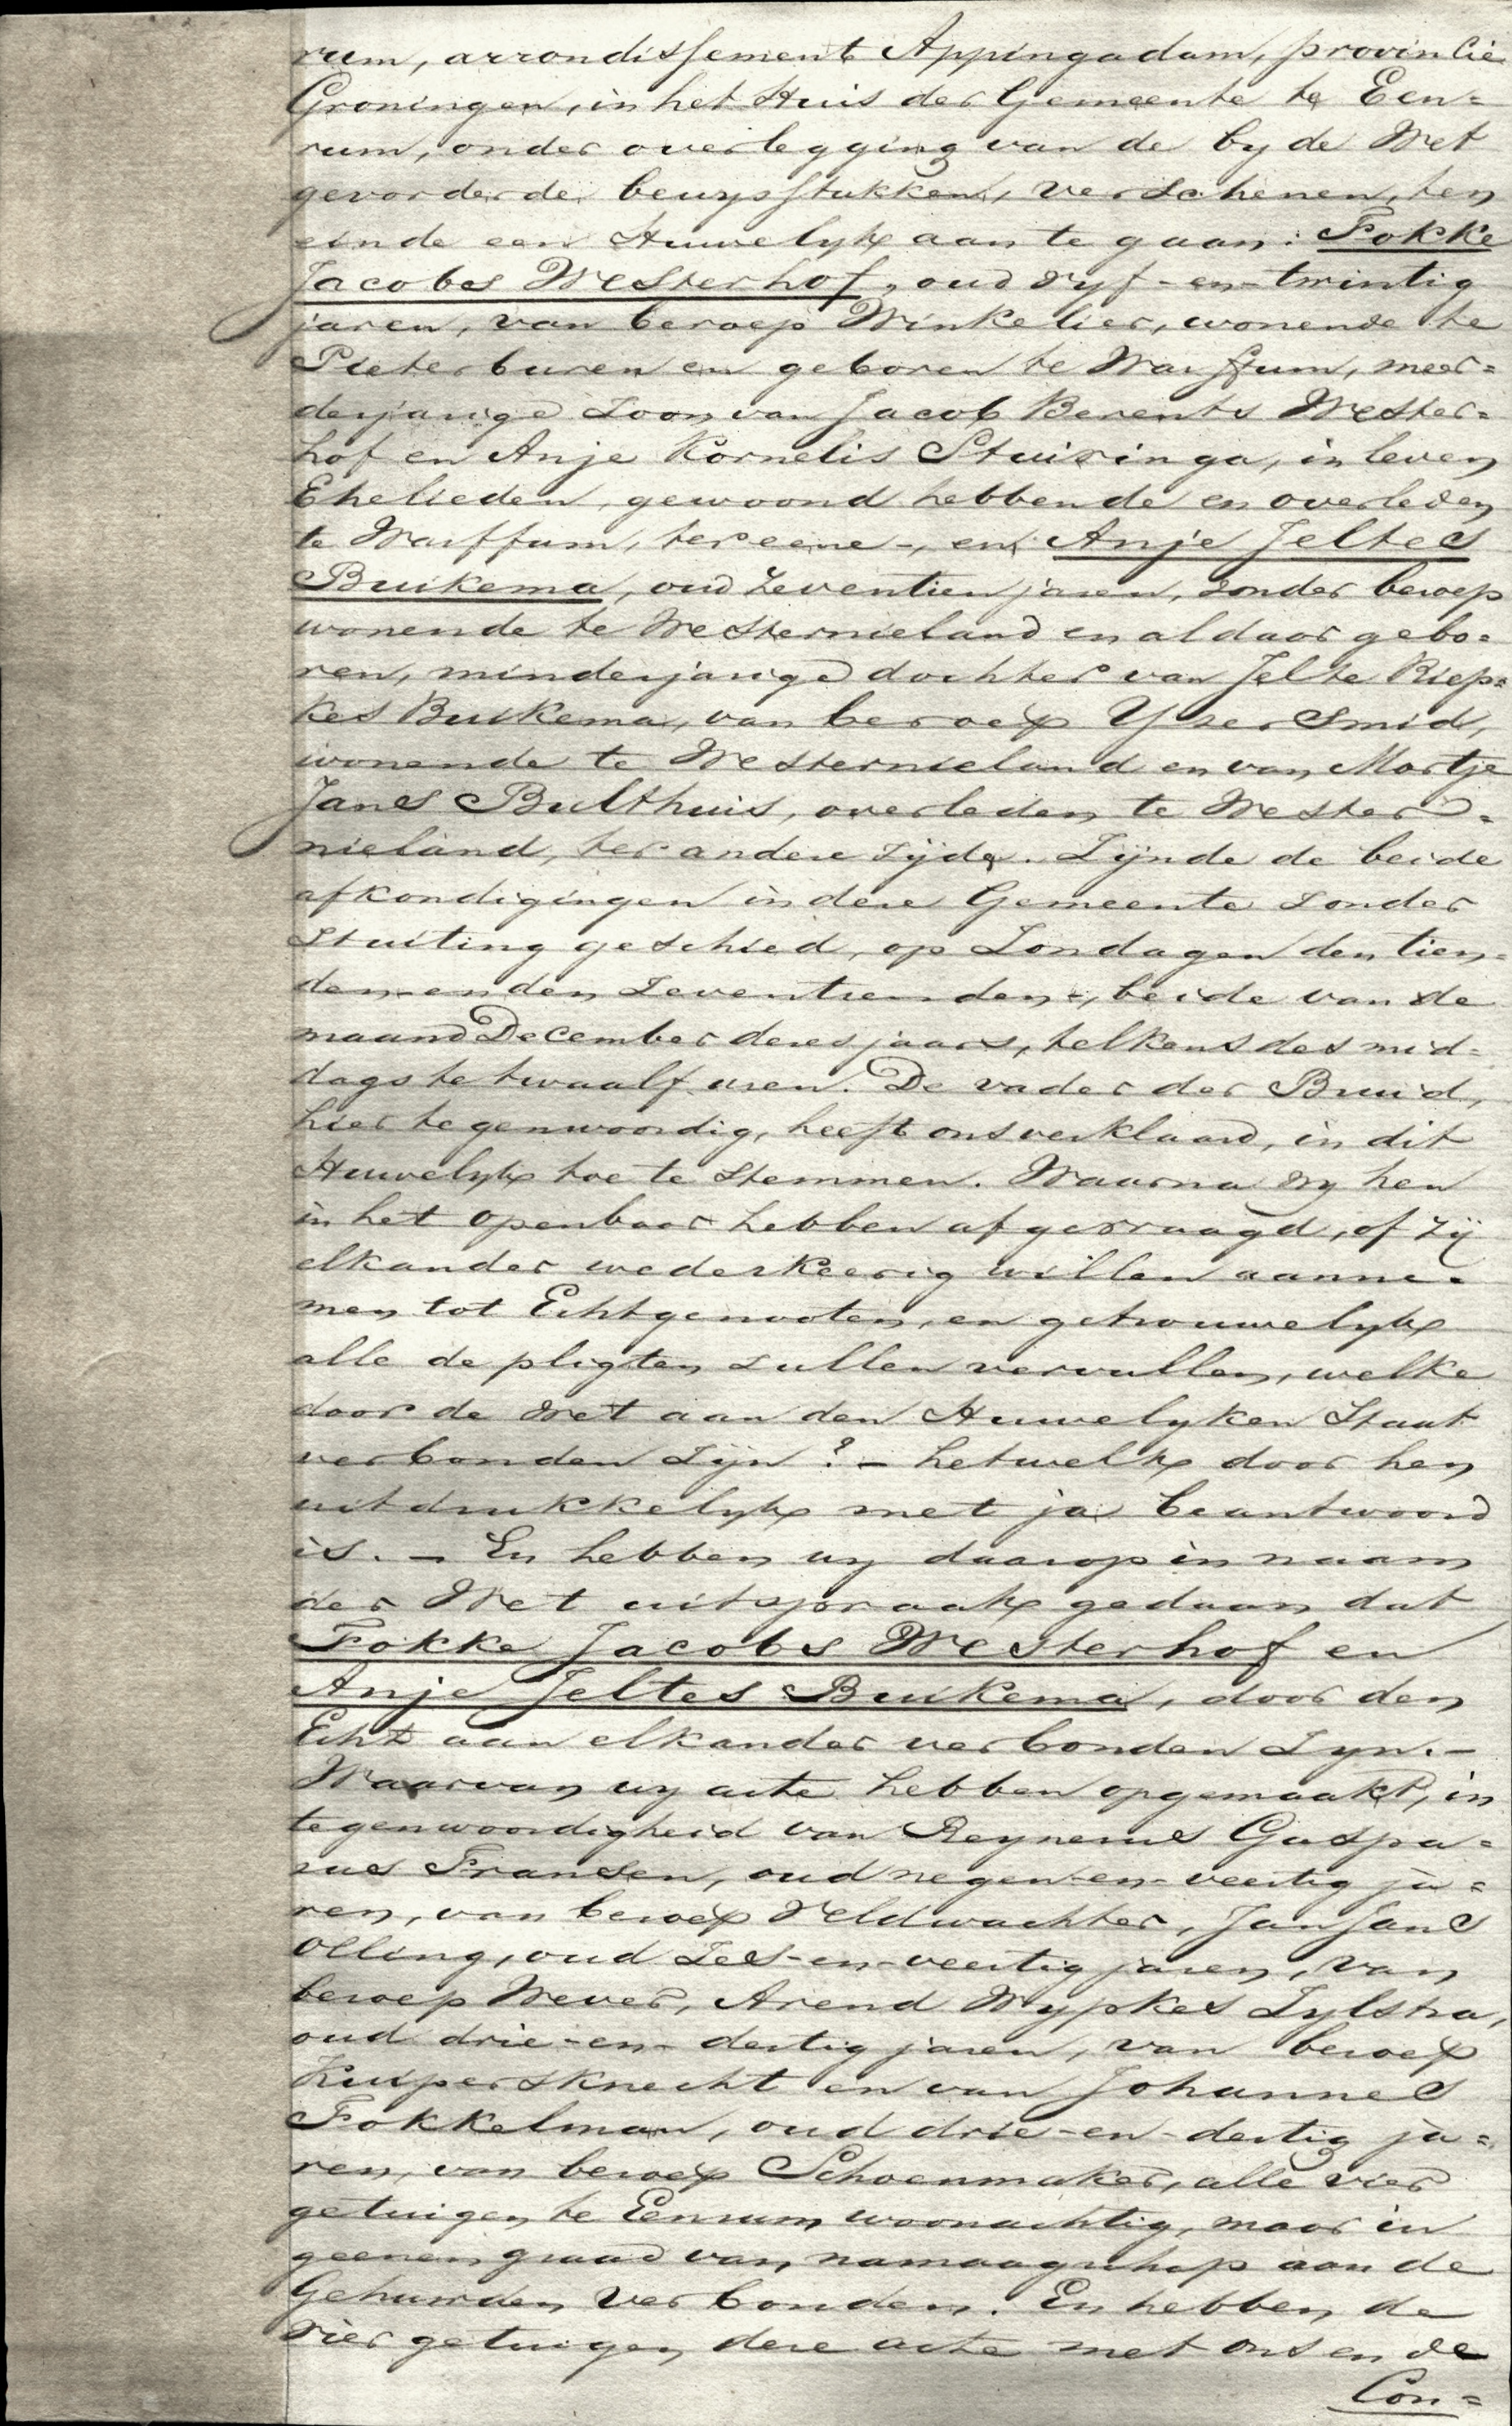 rum, arrondissement Appingadam, provincie
Groningen, in het Huis der Gemeente te Een=
rum, onder overlegging van de by de Wet
gevorderde bewysstukken, verschenen, ten
einde een Huwelyk aan te gaan: Fokke
Jacobs Westerhof, oud vyf-en-twintig
jaren, van beroep Winkelier, wonende te
Pieterburen en geboren te Warffum, meer=
derjarige Zoon van Jacob Berents Wester=
hof en Anje Kornelis Stuivinga, in leven
Ehelieden, gewoond hebbende en overleden
te Warffum, ter eene-, en Anje Jeltes
Buikema, oud zeventien jaren, zonder beroep
wonende te Westernieland en aldaar gebo=
ren, minderjarige dochter van Jelte Riep=
kes Buikema, van beroep Yzersmid,
wonende te Westernieland en van Martje
Jans Bulthuis, overleden te Wester=
nieland, ter andere zijde. Zijnde de beide
afkondigingen in deze Gemeente zonder
Stuiting geschied, op Zondagen den tien=
den- en den Zeventienden-, beide van de
maand December dezes jaars, telkens des mid=
dags te twaalf uren. De vader der Bruid,
hier tegenwoordig, heeft ons verklaard, in dit
Huwelyk toe te stemmen. Waarna wy hen
in het openbaar hebben afgevraagd, of zij
elkander wederkeerig willen aanne=
men tot Echtgenooten, en getrouwelyk
alle de pligten zullen vervullen, welke
door de Wet aan den Huwelyken Staat
verbonden zijn? - hetwelk door hen
uitdrukkelyk met ja beantwoord
is. - En hebben wy daarop in naam
der Wet uitspraak gedaan dat
Fokke Jacobs Westerhof en
Anje Jeltes Buikema, door den
Echt aan elkander verbonden zyn.-
Waarvan wy acte hebben opgemaakt, in
tegenwoordigheid van Reynerus Gaspa=
rus Fransen, oud negen-en-veertig ja=
ren, van beroep Veldwachter, Jan Jans
Olling, oud Zes-en-veertig jaren, van
beroep Wever, Arend Wypkes Zylstra,
oud drie-en-dertig jaren, van beroep
Kuipersknecht en van Johannes
Fokkelman, oud drie-en-dertig ja=
ren, van beroep Schoenmaker, alle vier
getuigen te Eenrum woonachtig, maar in
geenen graad van namaagschap aan de
Gehuwden verbonden. En hebben de
vier getuigen deze acte met ons en de
Con=